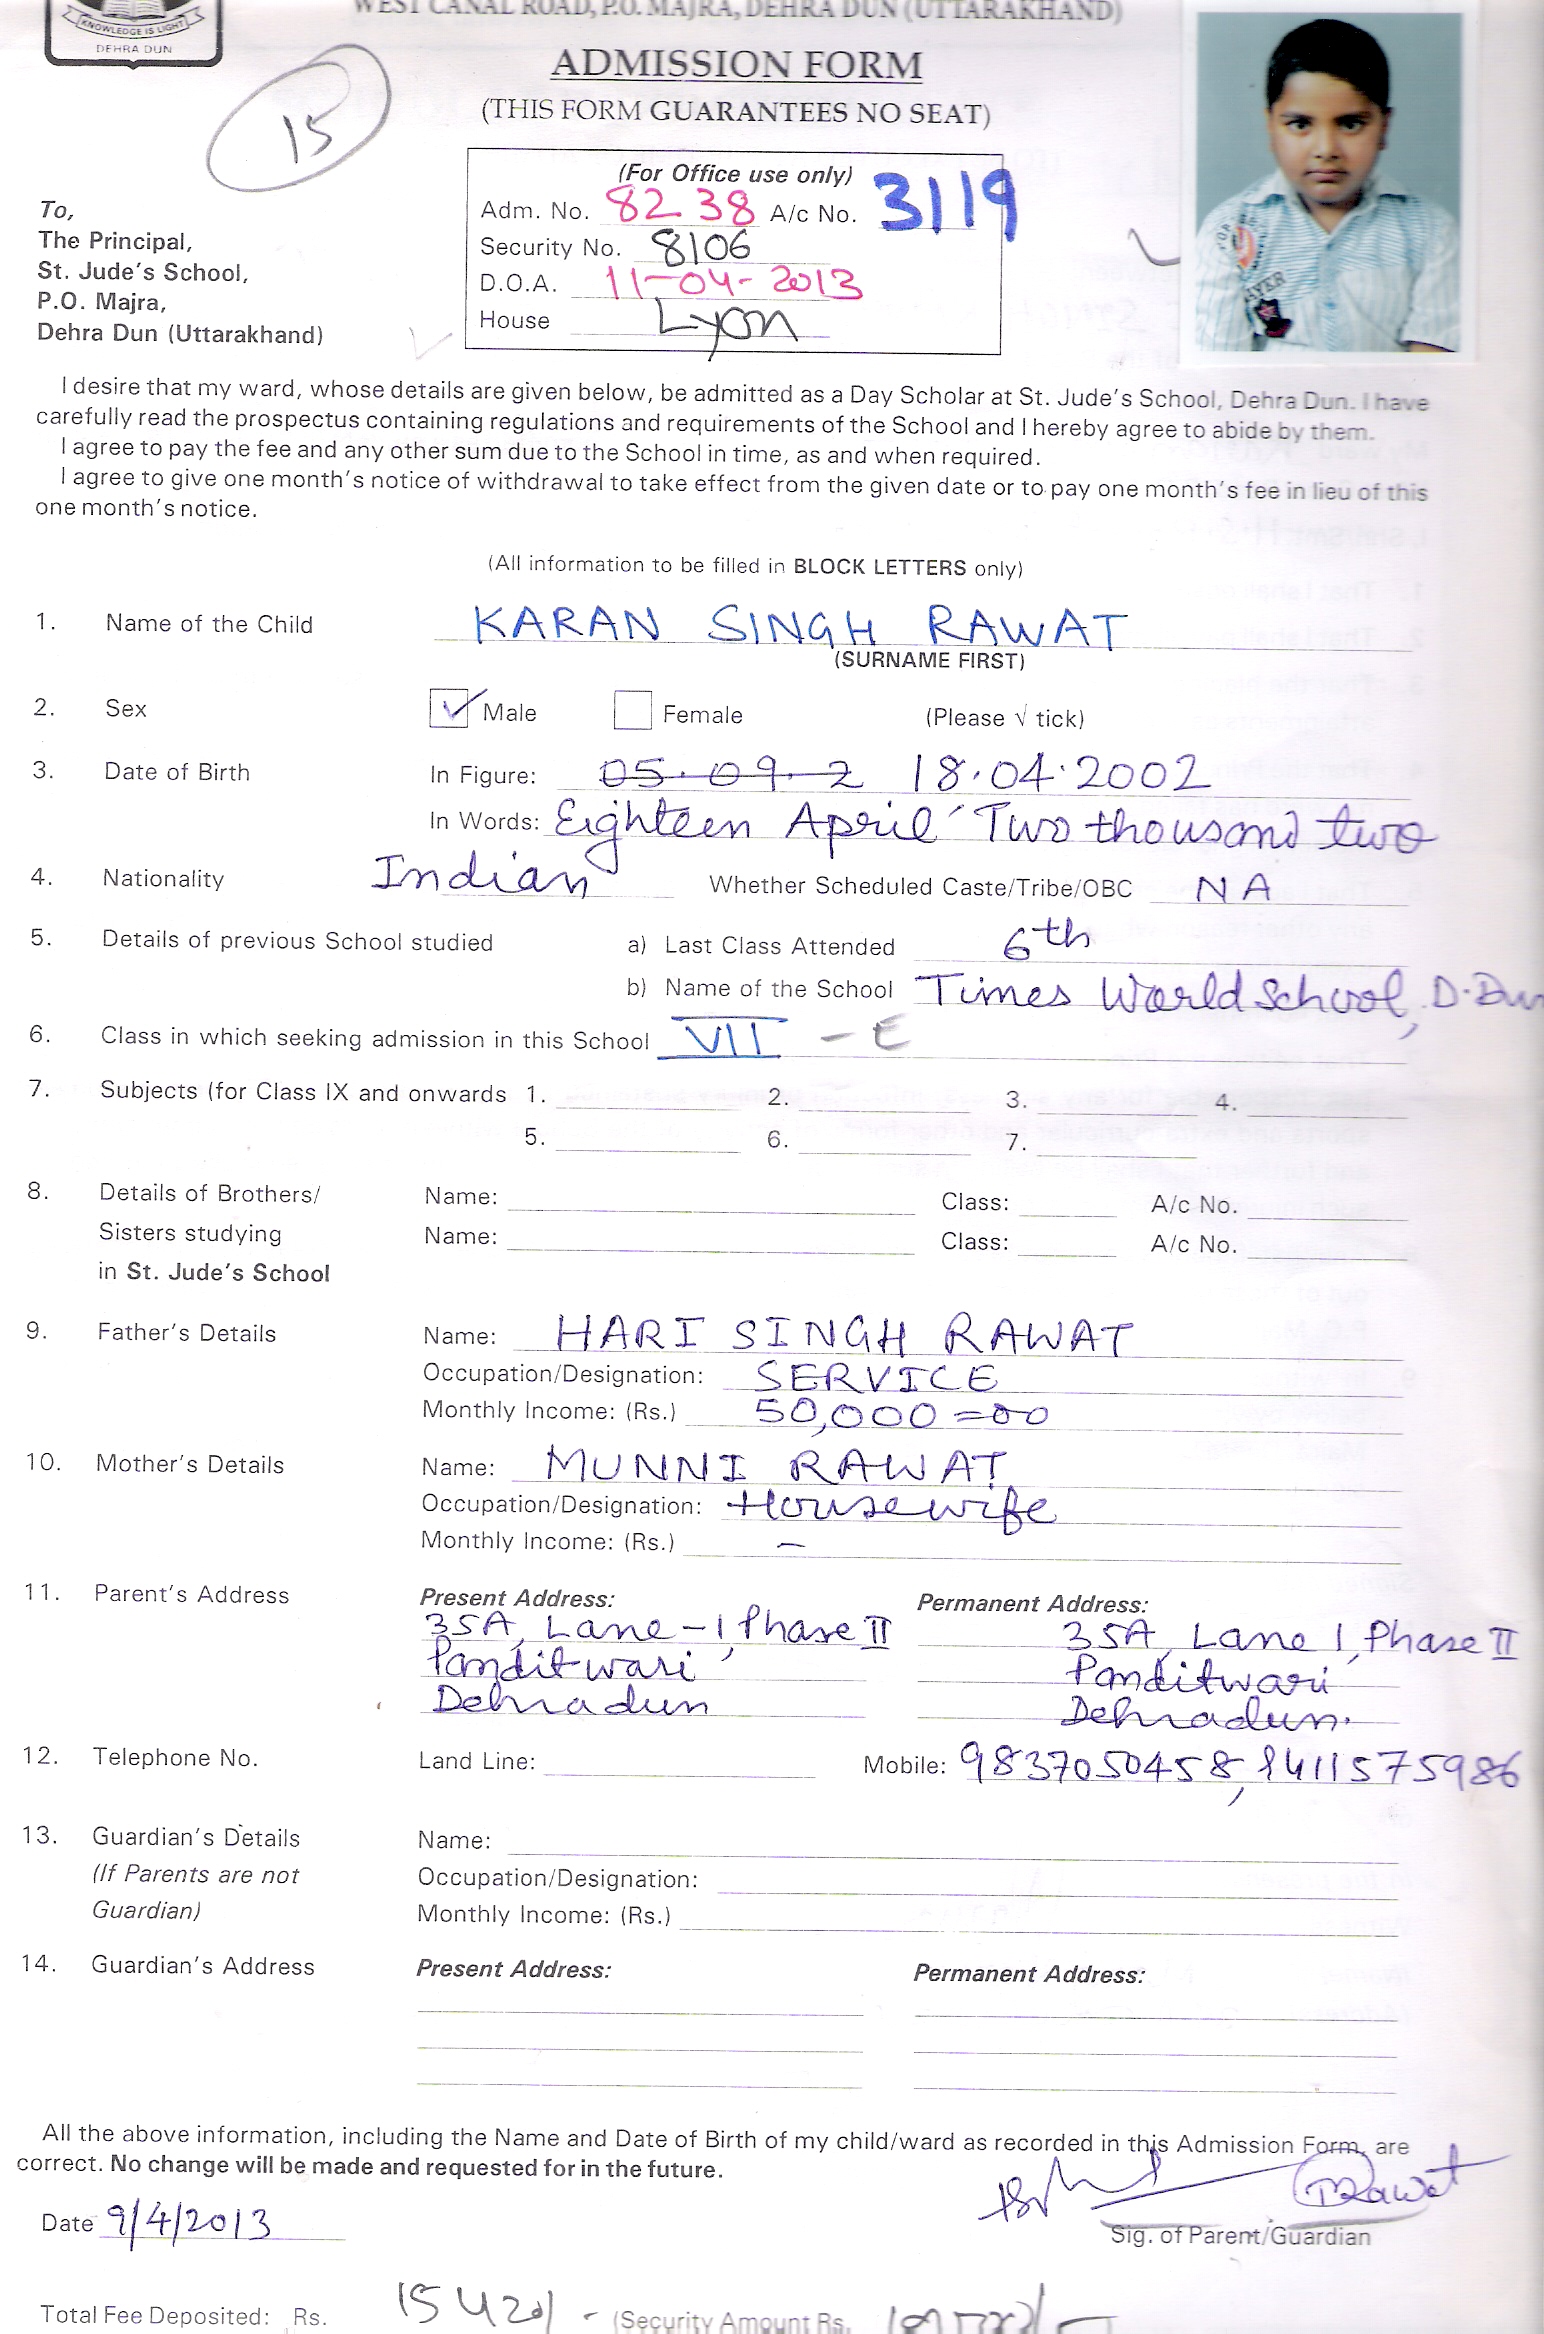 KNOWLEDGE IS LIGHT
DEHRA DUN
WEST CANAL ROAD, P.O. MAJRA, DEHRA DUN (UTTARAKHAND)
ADMISSION FORM
(THIS FORM GUARANTEES NO SEAT)
15
(For Office use only)
Adm. No. 8238 A/c No. 3119
Security No. 8106
D.O.A. 11-04-2013
House Lyon
To,
The Principal,
St. Jude's School,
P.O. Majra,
Dehra Dun (Uttarakhand)
I desire that my ward, whose details are given below, be admitted as a Day Scholar at St. Jude's School, Dehra Dun. I have
carefully read the prospectus containing regulations and requirements of the School and I hereby agree to abide by them.
I agree to pay the fee and any other sum due to the School in time, as and when required.
I agree to give one month's notice of withdrawal to take effect from the given date or to pay one month's fee in lieu of this
one month's notice.
(All information to be filled in BLOCK LETTERS only)
1. Name of the Child KARAN SINGH RAWAT
(SURNAME FIRST)
2. Sex Male Female (Please √ tick)
3. Date of Birth In Figure: 05.09.2 18.04.2002
In Words: Eighteen April Two thousand two
4. Nationality Indian Whether Scheduled Caste/Tribe/OBC NA
5. Details of previous School studied a) Last Class Attended 6th
b) Name of the School Times World School, D.Dun
6. Class in which seeking admission in this School VII - E
7. Subjects (for Class IX and onwards 1. 2. 3. 4.
5. 6. 7.
8. Details of Brothers/ Name: Class: A/c No.
Sisters studying Name: Class: A/c No.
in St. Jude's School
9. Father's Details Name: HARI SINGH RAWAT
Occupation/Designation: SERVICE
Monthly Income: (Rs.) 50,000=00
10. Mother's Details Name: MUNNI RAWAT
Occupation/Designation: Housewife
Monthly Income: (Rs.) -
11. Parent's Address Present Address: Permanent Address:
35A, Lane-1, Phase II 35A, Lane 1, Phase II
Panditwari Panditwari
Dehradun Dehradun.
12. Telephone No. Land Line: Mobile: 9837050458, 9411575986
13. Guardian's Details Name:
(If Parents are not Occupation/Designation:
Guardian) Monthly Income: (Rs.)
14. Guardian's Address Present Address: Permanent Address:
All the above information, including the Name and Date of Birth of my child/ward as recorded in this Admission Form, are
correct. No change will be made and requested for in the future.
Rawat
Date 9/4/2013 Sig. of Parent/Guardian
Total Fee Deposited: Rs. 15420/- (Security Amount Rs.